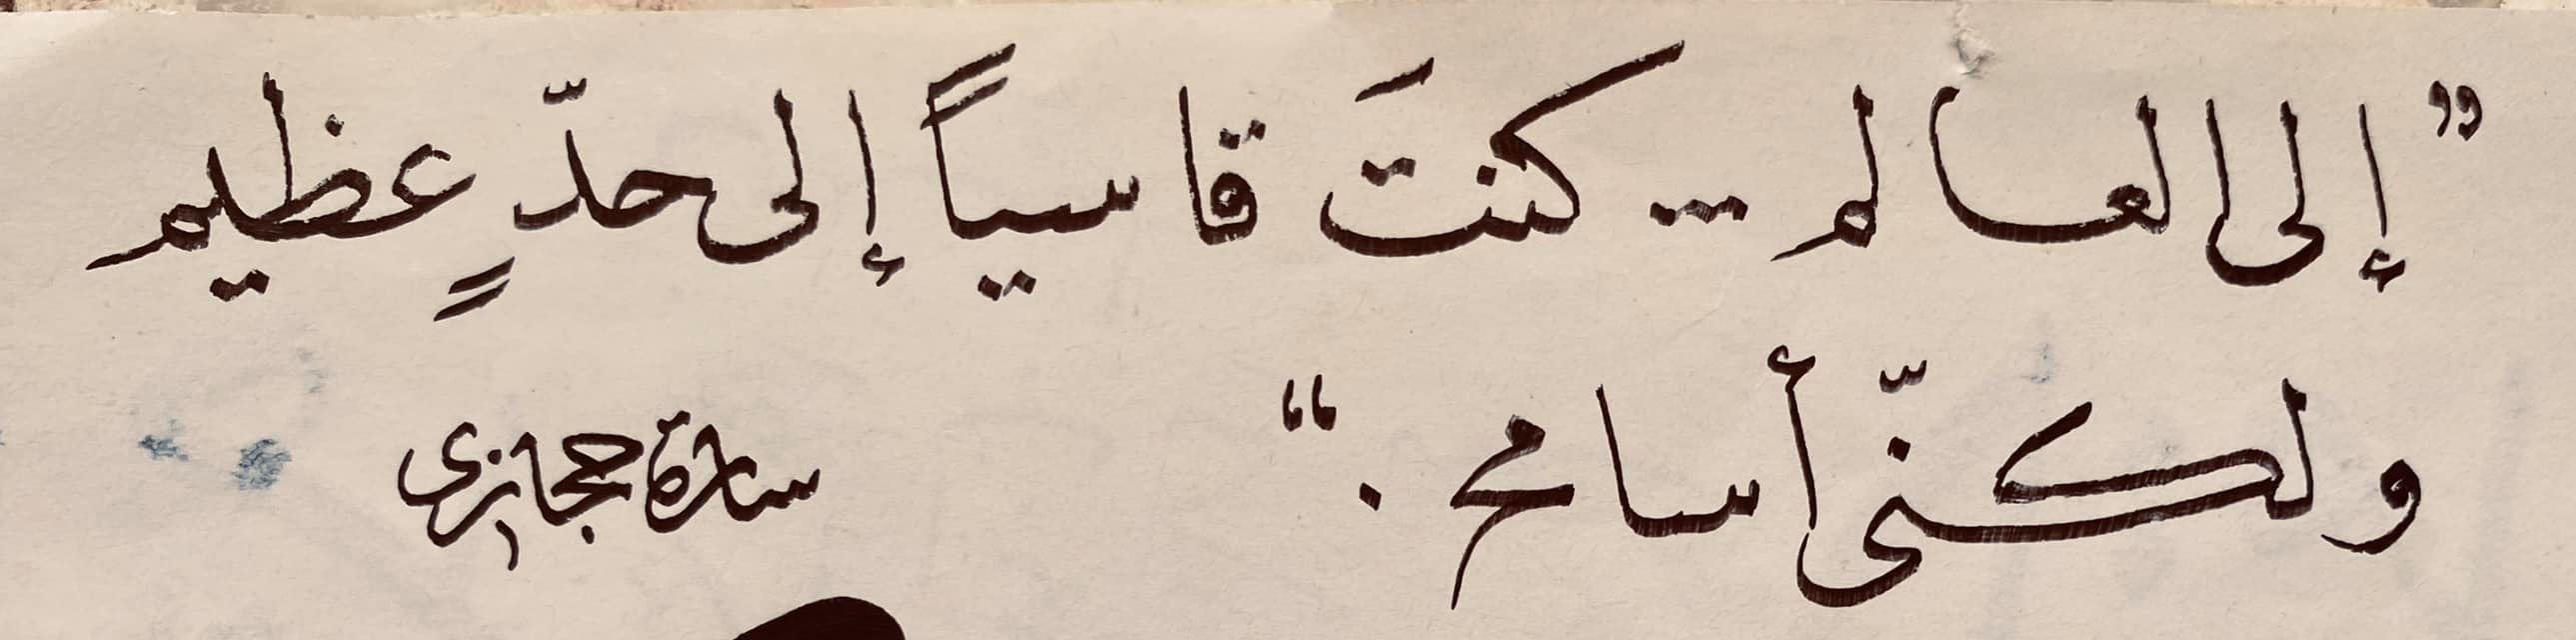 ”إلى العالم ... كنتَ قاسياً إلى حدٍّ عظيم
ولكنّى أسامح .“
سارة حجازى